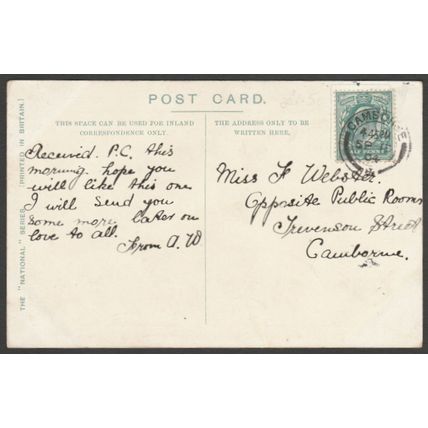 POST CARD.
THIS SPACE CAN BE USED FOR INLAND
CORRESPONDENCE ONLY.
Received. P.C. this
morning. hope you
will like this one
I will send you
some more later on
love to all.
From A. W
THE ADDRESS ONLY TO BE
WRITTEN HERE.
Miss F Webster.
Opposite Public Rooms
Trevenson Street
Camborne.
THE "NATIONAL" SERIES
(PRINTED IN BRITAIN.)
CAMBORNE
SP
04